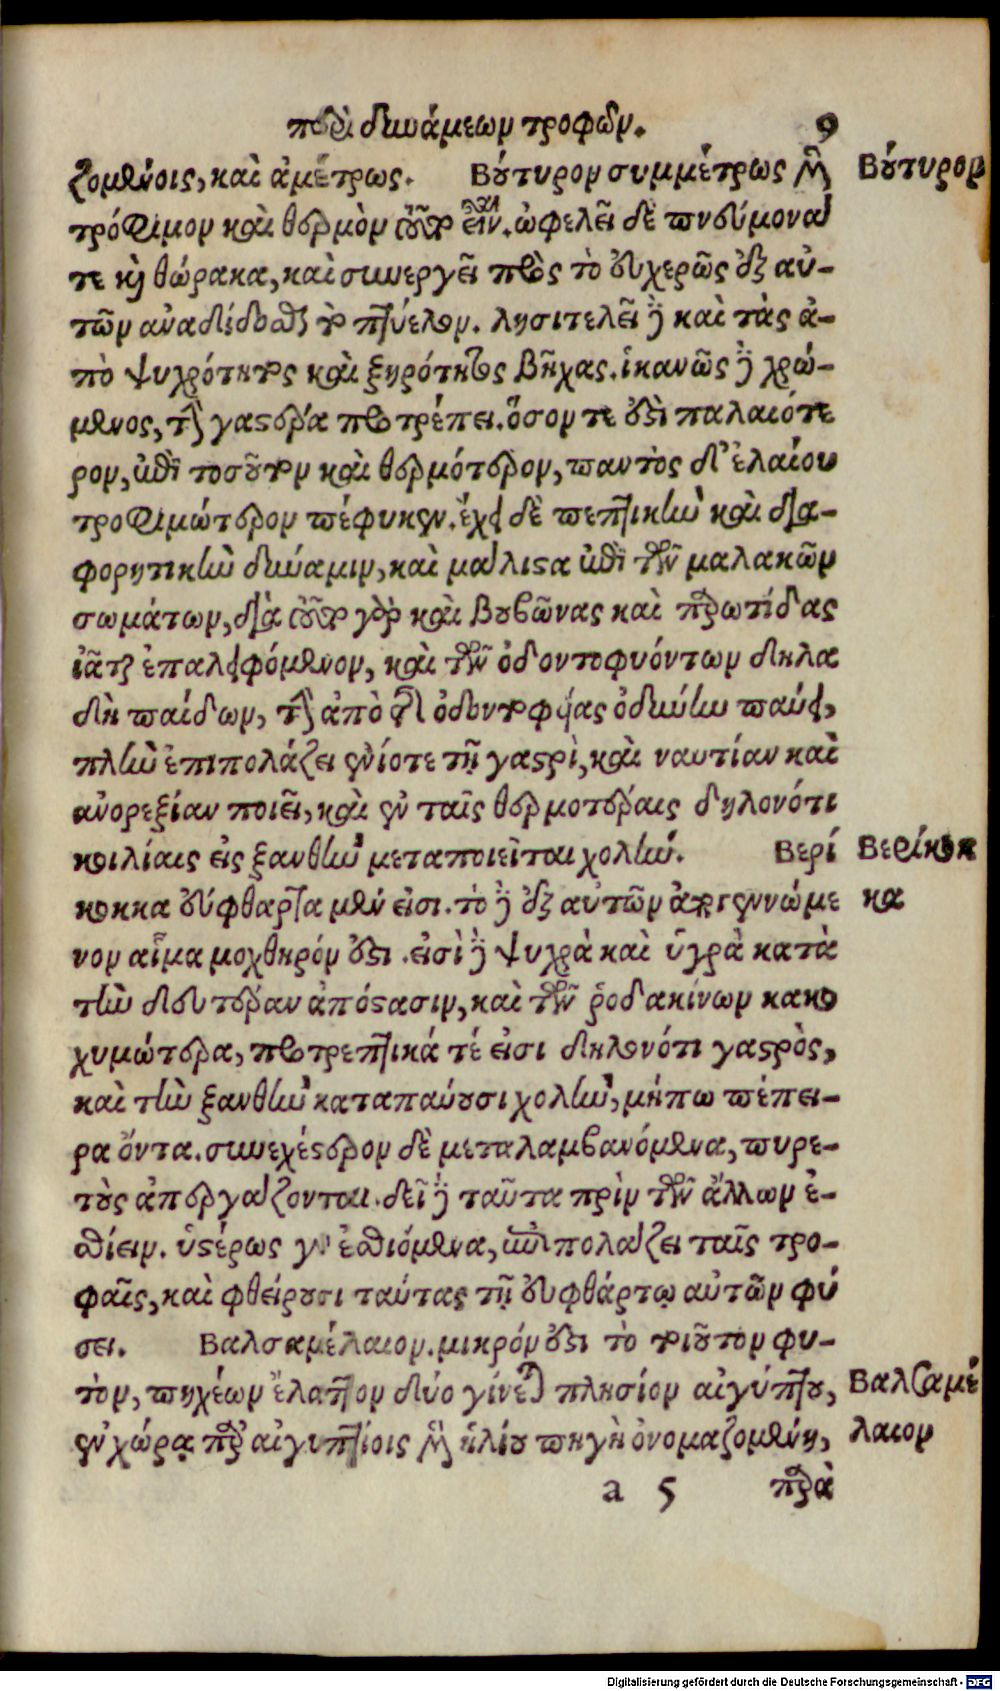 περὶ δυνάμεων τροφῶν. 9
ζομένοις, καὶ ἀμέτρως. Βούτυρον συμμέτρως μὲν Βούτυρον
τρόφιμον καὶ θερμὸν τοῦτο ἐστιν. ὠφελεῖ δὲ πνεύμονα
τε καὶ θώρακα, καὶ συνεργεῖ πρὸς τὸ εὐχερῶς ἐξ αὐ-
τῶν ἀναδίδοσθαι τὸ πτύελον. λυσιτελεῖ δὲ καὶ τὰς ἀ-
πὸ ψυχρότητος καὶ ξηρότητος βῆχας. ἱκανῶς δὲ χρώ-
μενος, τὴν γαστέρα προτρέπει. ὅσον τε ἐστὶ παλαιότε
ρον, ἐπὶ τοσοῦτον καὶ θερμότερον, παντὸς δι' ἐλαίου
τροφιμώτερον πέφυκεν. ἔχει δὲ πεπτικὴν καὶ δια-
φορητικὴν δύναμιν, καὶ μάλιστα ἐπὶ τῶν μαλακῶν
σωμάτων, διὰ τοῦτο γὰρ καὶ βουβῶνας καὶ παρωτίδας
ἰᾶται ἐπαλειφόμενον, καὶ τῶν ὀδοντοφυόντων δηλα
δὴ παίδων, τὴν ἀπὸ τῆς ὀδοντοφυΐας ὀδύνην παύει,
πλὴν ἐπιπολάζει ἐνίοτε τῇ γαστρὶ, καὶ ναυτίαν καὶ
ἀνορεξίαν ποιεῖ, καὶ ἐν ταῖς θερμοτέραις δηλονότι
κοιλίαις εἰς ξανθὴν μεταποιεῖται χολήν. Βερί Βερίκοκ
κοκκα εὔφθαρτα μέν εἰσι. τὸ δὲ ἐξ αὐτῶν ἀπογεννώμε κα
νον αἷμα μοχθηρόν ἐστι. εἰσὶ δὲ ψυχρὰ καὶ ὑγρὰ κατὰ
τὴν δευτέραν ἀπόστασιν, καὶ τῶν ῥοδακίνων κακο
χυμώτερα, προτρεπτικά τέ εἰσι δηλονότι γαστρὸς,
καὶ τὴν ξανθὴν καταπαύουσι χολὴν, μήπω πέπει-
ρα ὄντα. συνεχέστερον δὲ μεταλαμβανόμενα, πυρε-
τοὺς ἀπεργάζονται. δεῖ δὲ ταῦτα πρὶν τῶν ἄλλων ἐ-
σθίειν. ὑστέρως γὰρ ἐσθιόμενα, ἐπιπολάζει ταῖς τρο-
φαῖς, καὶ φθείρουσι ταύτας τῇ εὐφθάρτῳ αὐτῶν φύ
σει. Βαλσαμέλαιον. μικρόν ἐστι τὸ τοιοῦτον φυ-
τὸν, πηχέων ἔλαττον δύο γίνεται πλησίον αἰγύπτου, Βαλσαμέ
ἐν χώρᾳ παρ' αἰγυπτίοις μὲν ἡλίου πηγὴ ὀνομαζομένη, λαιον
a 5 παρὰ
Digitalisierung gefördert durch die Deutsche Forschungsgemeinschaft - DFG